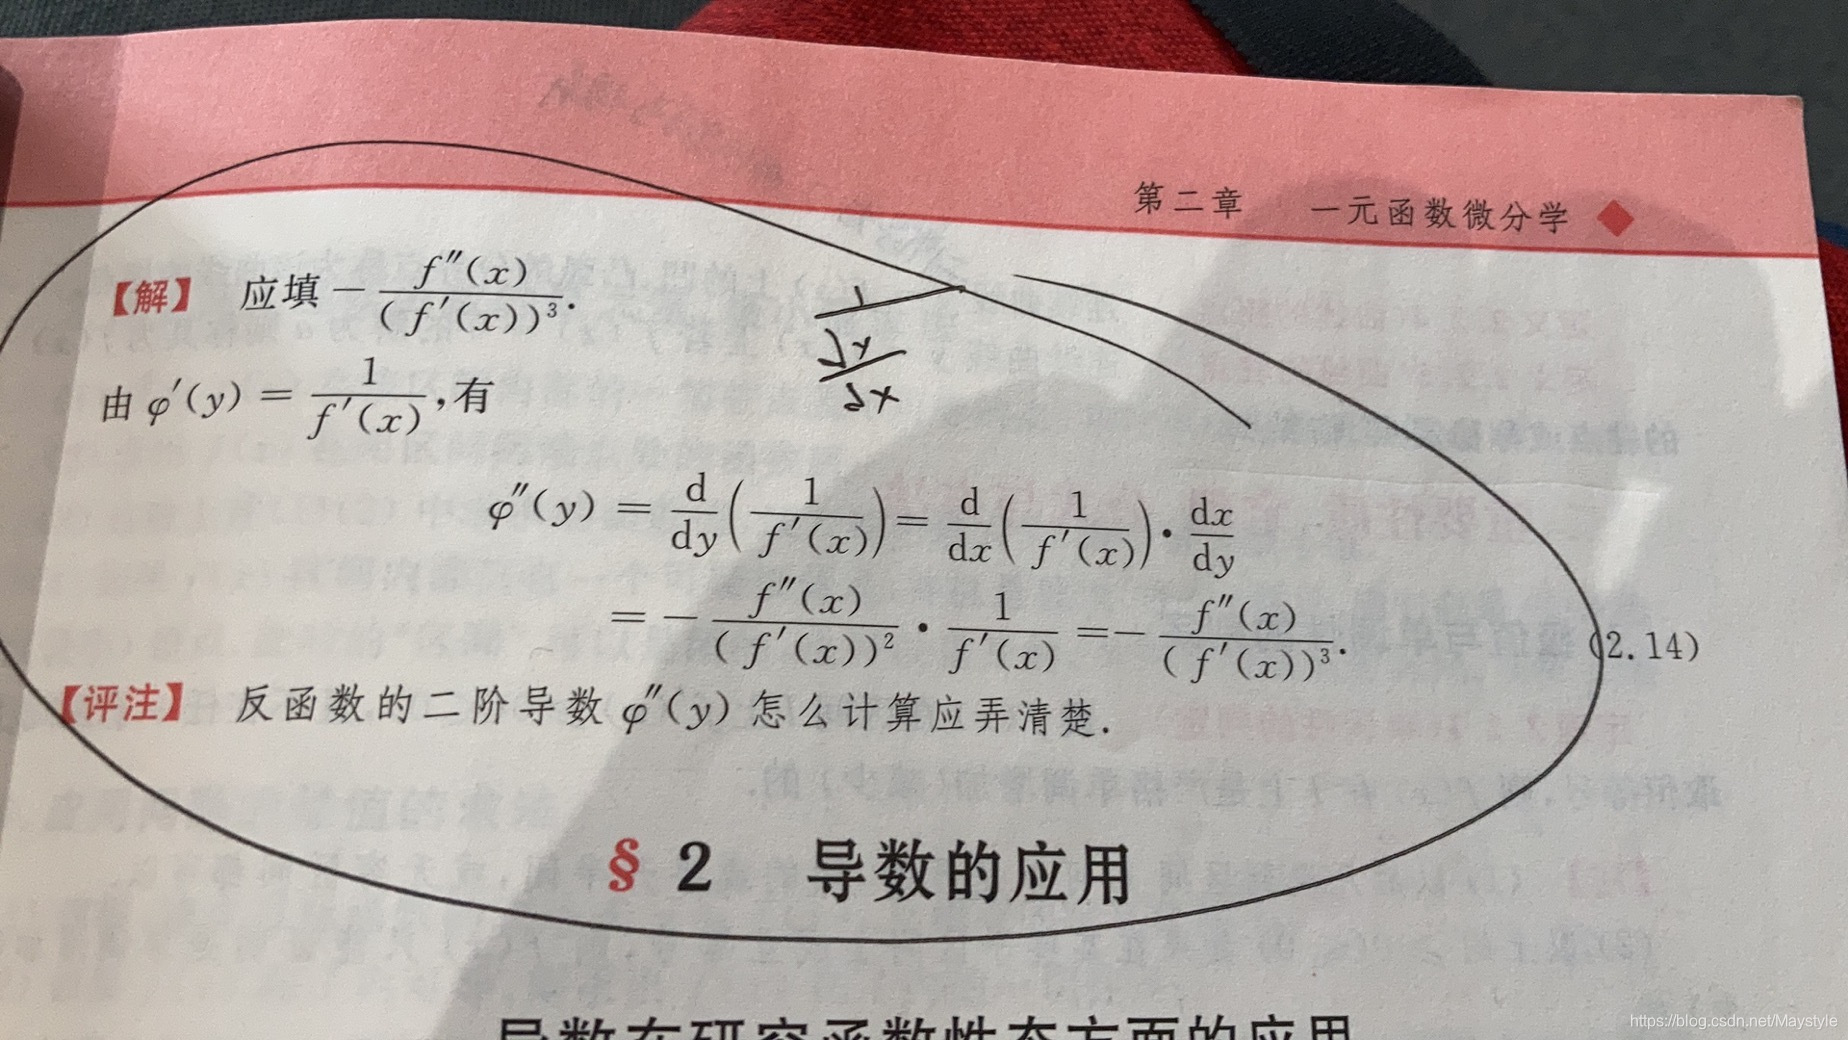 第二章 一元函数微分学
【解】 应填 $-\frac{f''(x)}{(f'(x))^3}$.
由 $\varphi'(y) = \frac{1}{f'(x)}$,有
$\varphi''(y) = \frac{d}{dy}\left(\frac{1}{f'(x)}\right) = \frac{d}{dx}\left(\frac{1}{f'(x)}\right) \cdot \frac{dx}{dy}$
$= -\frac{f''(x)}{(f'(x))^2} \cdot \frac{1}{f'(x)} = -\frac{f''(x)}{(f'(x))^3}$. (2.14)
【评注】 反函数的二阶导数 $\varphi''(y)$ 怎么计算应弄清楚.
§ 2 导数的应用
导数在研究函数性态方面的应用
https://blog.csdn.net/Maystyle